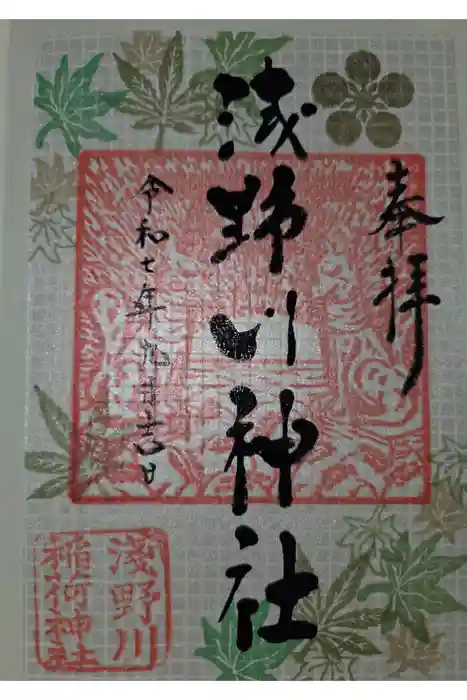 奉拝
浅野川神社
令和七年九月吉日
淺野川
稲荷神社